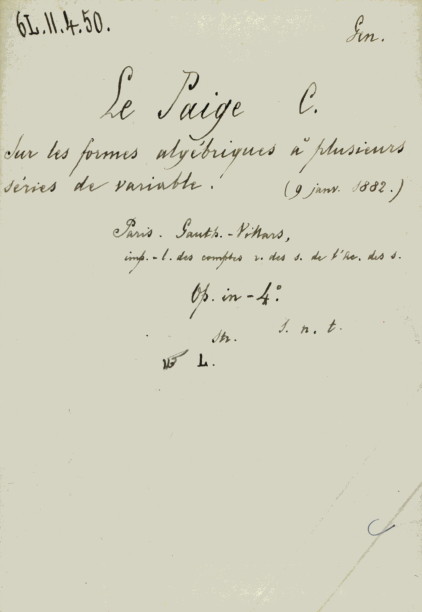 6L.11.4.50.
Gen.
Le Paige C.
Sur les formes algébriques à plusieurs
séries de variable. (9 janv. 1882.)
Paris. Gauth.-Villars,
imp.-l. des comptes r. des s. de l'Ac. des s.
Op. in-4°.
s. n. t.
L.